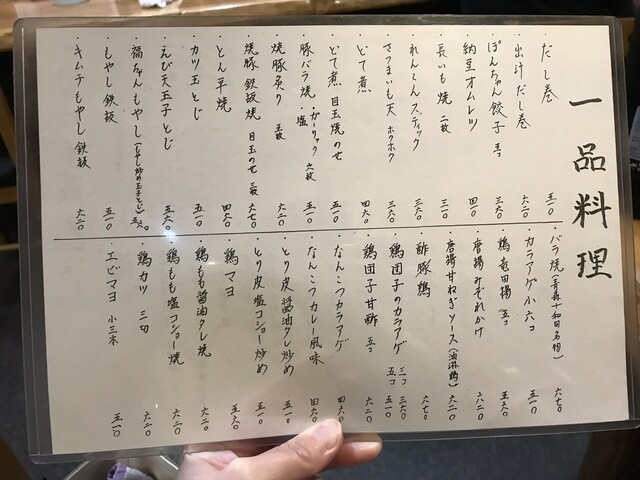 一品料理
・だし巻 五一〇
・出汁だし巻 六二〇
・ぽんちゃん餃子 五コ 三六〇
・納豆オムレツ 四一〇
・長いも焼 二枚 三一〇
・れんこんスティック 三六〇
・さつまいも天 ホクホク 三六〇
・どて煮 四六〇
・どて煮 目玉焼のせ 五一〇
・豚バラ焼 ・ガーリック ・塩 六枚 五一〇
・焼豚炙り 五枚 六二〇
・焼豚鉄板焼 目玉のせ 三枚 六七〇
・とん平焼 四六〇
・カツ玉とじ 五一〇
・えび天玉子とじ 五六〇
・福ちゃんもやし(もやし炒め玉子とじ) 五六〇
・もやし鉄板 五一〇
・キムチもやし鉄板 六二〇
・バラ焼(青森十和田名物) 六七〇
・カラアゲ小六コ 五一〇
・鶏竜田揚 五コ 五六〇
・唐揚みぞれかけ 六二〇
・唐揚甘ねぎソース(油淋鶏) 六二〇
・酢豚鶏 六七〇
・鶏団子のカラアゲ 三コ 三六〇 五コ 五一〇
・鶏団子甘酢 五コ 六二〇
・なんこつカラアゲ 四六〇
・なんこつカレー風味 四六〇
・とり皮醤油タレ炒め 五一〇
・とり皮塩コショー炒め 五一〇
・鶏マヨ 五六〇
・鶏もも醤油タレ焼 六二〇
・鶏もも塩コショー焼 六二〇
・鶏カツ 三切 六二〇
・エビマヨ 小三本 五一〇